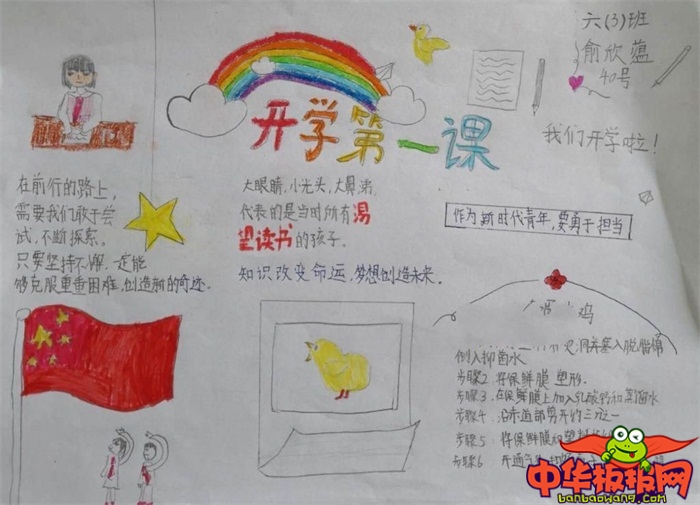 六(3)班
俞欣蕴
40号
开学第一课
我们开学啦！
在前行的路上，
需要我们敢于尝
试，不断探索。
只要坚持不懈，一定能
够克服重重困难，创造新的奇迹。
大眼睛，小光头，大鼻涕，
代表的是当时所有渴
望读书的孩子。
知识改变命运，梦想创造未来。
作为新时代青年，要勇于担当
鸡
倒入抑菌水
步骤2 将保鲜膜塑形.
步骤3. 在保鲜膜上加入乳酸钙和蒸馏水
步骤4 沿赤道部剪开约三分之一
步骤5 将保鲜膜和塑料
步骤6 开通气
中华板报网
banbaowang.com